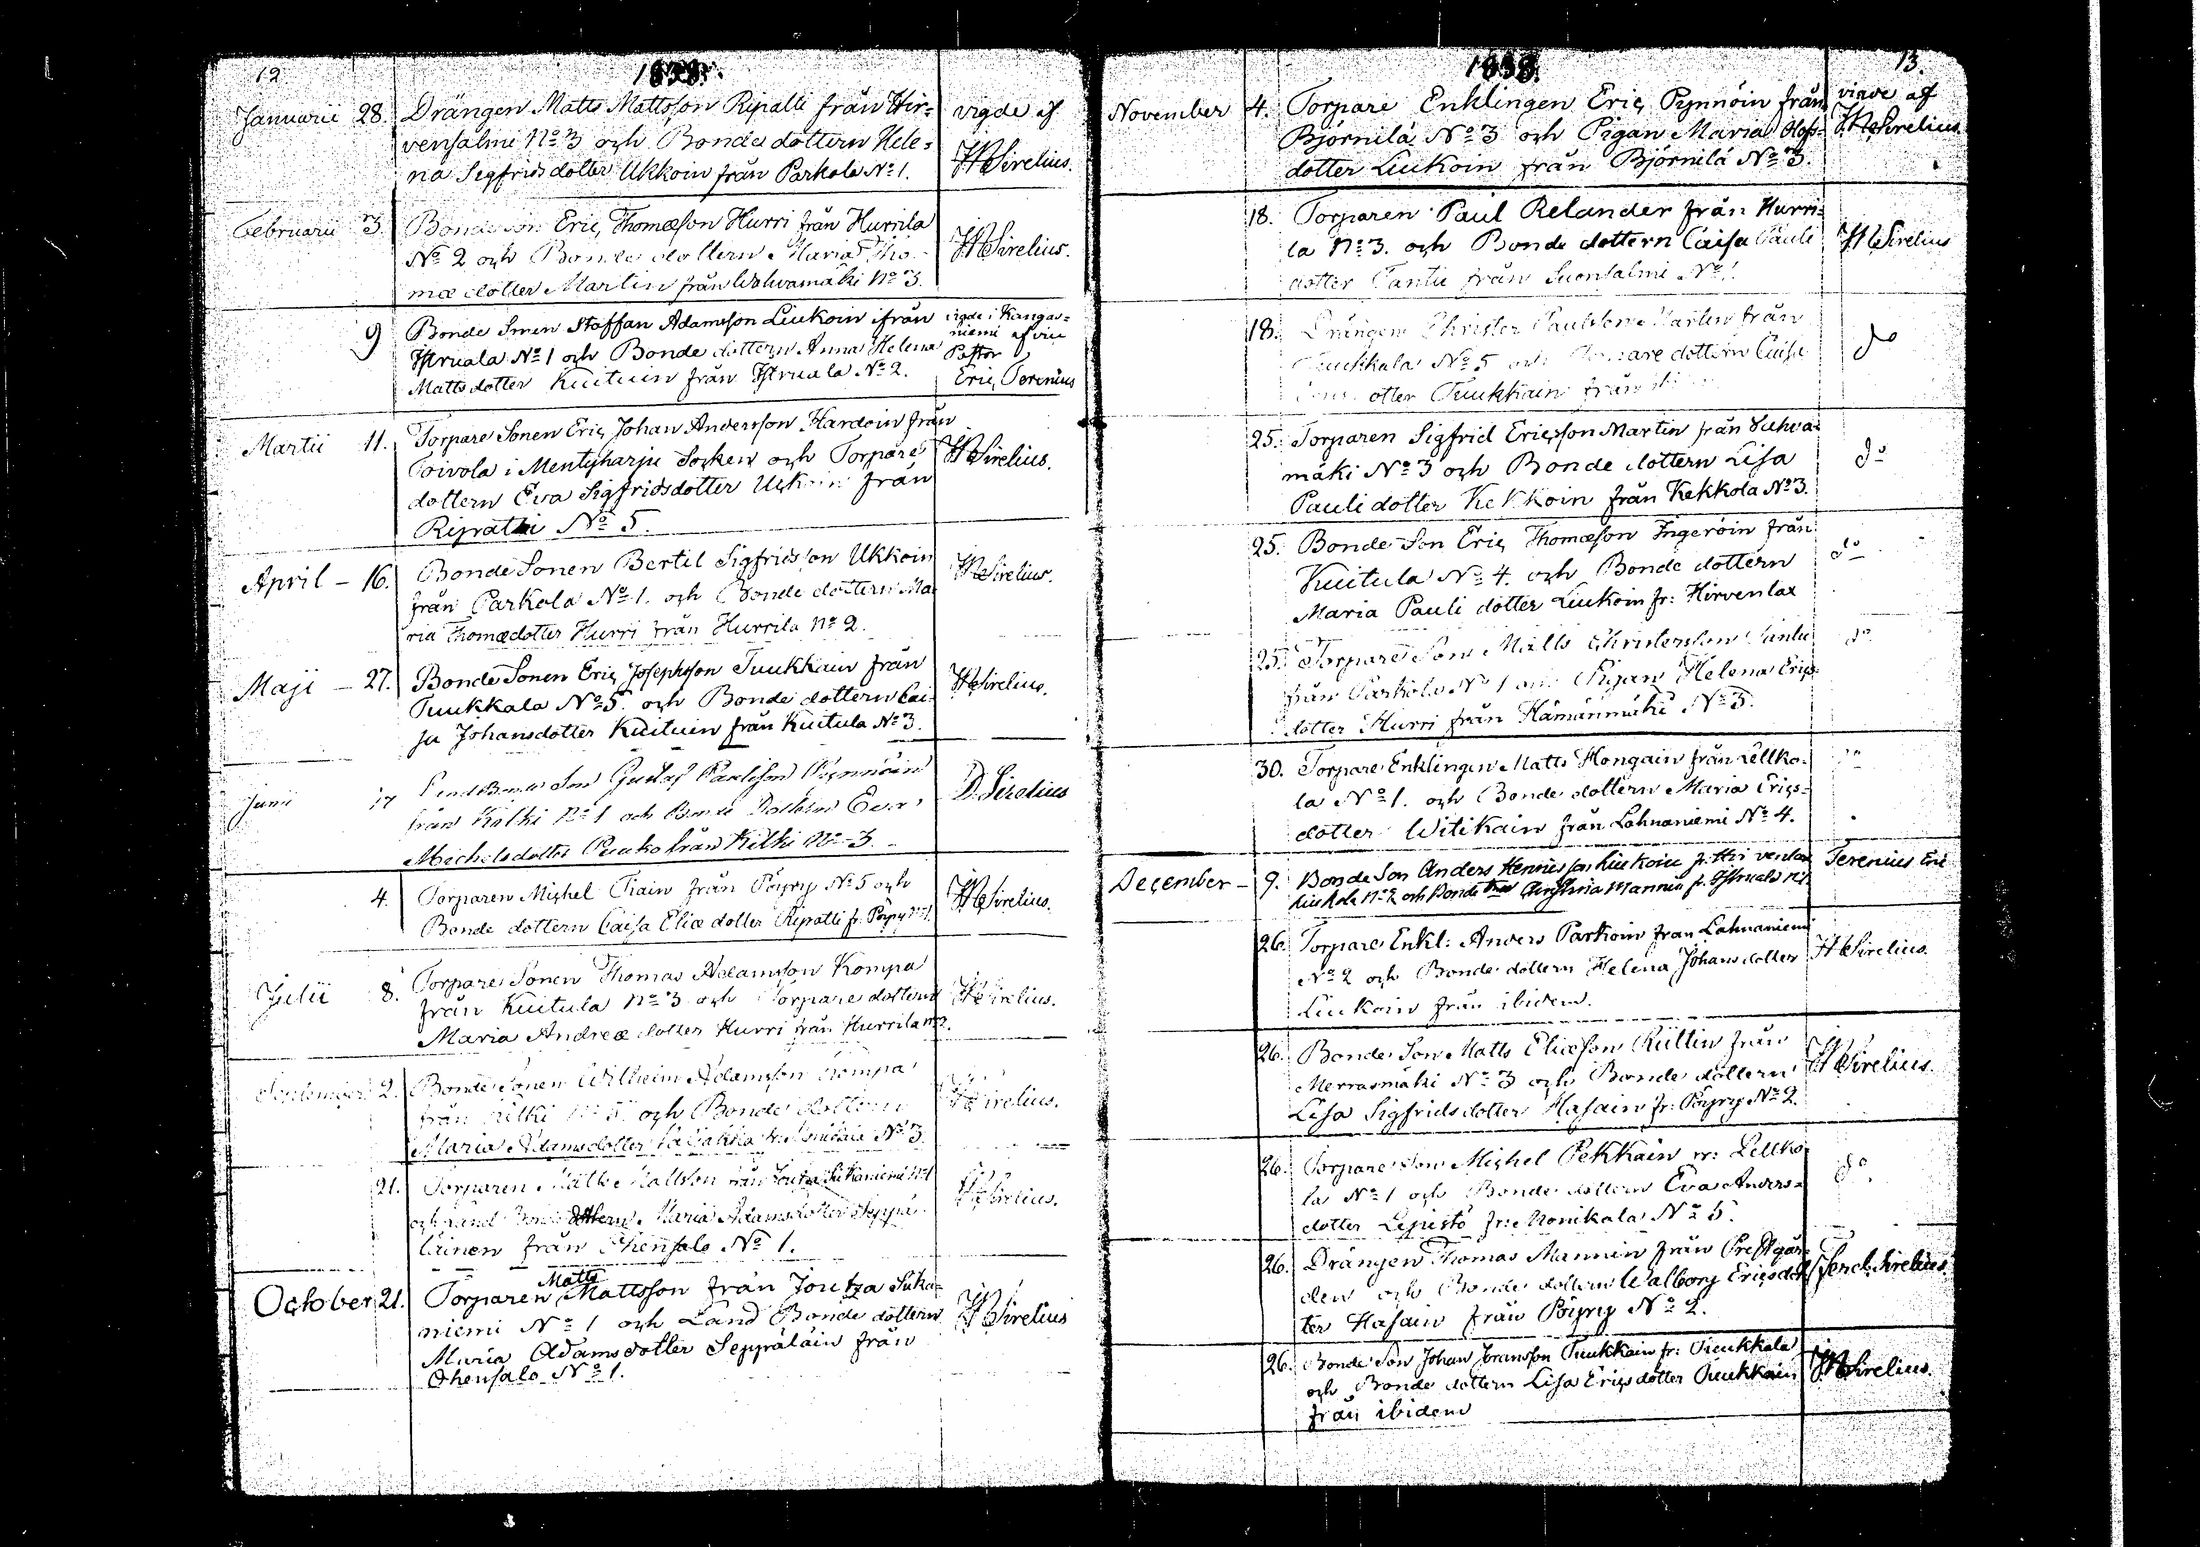 12
1838.
Januarii 28. Drängen Matts Mattsson Ripatti från Hir=
vensalmi No 3 och Bonde dottern Hele=
na Sigfrids dotter Ukkoin från Parkola No 1.
vigde af
HSirelius.
Februarii 3. Bondeson Eric Thomæson Hurri från Hurrila
No 2 och Bonde dottern Maria Tho-
mæ dotter Martin från Wahvamäki No 3.
HSirelius.
9 Bonde Sonen Staffan Adamsson Liukoin ifrån
No 1 och Bonde dottern Anna Helena
Matts dotter Kuituin från No 2.
vigde i Kangas=
niemi af vice
Pastor
Eric Terenius
Martii 11. Torpare Sonen Eric Johan Andersson Hardoin från
Toivola i Mentyharju Socken och Torpare
dottern Eva Sigfridsdotter från
Ripatti No 5.
HSirelius.
April - 16. Bonde Sonen Bertil Sigfridsson Ukkoin
från Parkola No 1. och Bonde dottern Ma-
ria Thomædotter Hurri från Hurrila No 2.
HSirelius.
Maji - 27. Bonde Sonen Eric Josephsson Tuukkain från
Tuukkala No 5. och Bonde dottern Cai-
sa Johansdotter Kuituin från Kuitula No 3.
HSirelius.
Junii 17 Son Gustaf Paulsson Pynnöin
från Kilki No 1 och Bonde Dottern Eva
Michelsdotter från Kilki No 3.
D. Sirelius
4. Torparen Michel Tiain från Pöyry No 5 och
Bonde dottern Caisa Eliæ dotter Ripatti fr. Pöyry No 1.
HSirelius.
Julii 8. Torpare Sonen Thomas Adamsson Kompa
från Kuitula No 3 och Torpare dottern
Maria Andreæ dotter Hurri från Hurrila No 2.
HSirelius.
September 2. Bonde Sonen Wilhelm Adamsson Kompa
från Kilki No 5 och Bonde dottern
Maria Adamsdotter fr. No 3.
HSirelius.
21. Torparen Matts Mattsson från Joutza Sukaniemi No 1
och Land Bonde dottern Maria Adamsdotter Seppä
läinen från Ohensalo No 1.
HSirelius.
October 21. Torparen Matts Mattsson från Joutza Suka=
niemi No 1 och Land Bonde dottern
Maria Adamsdotter Seppäläin från
Ohensalo No 1.
HSirelius
13.
1838.
November 4. Torpare Enklingen Eric Pynnöin från
Björnilä No 3 och Pigan Maria Olofs-
dotter Liukoin från Björnilä No 3.
vigde af
HSirelius.
18. Torparen Paul Relander från Hurri=
la No 3. och Bonde dottern Caisa Pauli
dotter från Suonsalmi No 1.
HSirelius
18. Drängen Christer Paulsson Martin från
Tuukkala No 5 och Torpare dottern Caisa
dotter Tuukkain från
do
25. Torparen Sigfrid Ericsson Martin från Vahva
mäki No 3 och Bonde dottern Lisa
Pauli dotter Kekkoin från Kekkola No 3.
do
25. Bonde Son Eric Thomæson Ingeröin från
Kuitula No 4. och Bonde dottern
Maria Pauli dotter Liukoin fr: Hirvenlax
do
25. Torpare Son Matts Christersson
från Parkola No 1 och Pigan Helena Erics
dotter Hurri från Hämänmäki No 3.
do
30. Torpare Enklingen Matts Hongain från Lellko-
la No 1. och Bonde dottern Maria Erics-
dotter Witikain från Lahnaniemi No 4.
do
December - 9. Bonde Son Anders Hennesson Liukoin fr. Hirvenlax
No 2 och Bonde Mannin fr.
Terenius
26. Torpare Enkl: Anders Parkoin från Lahnaniemi
No 2 och Bonde dottern Helena Johans dotter
Liukoin från ibidem.
HSirelius.
26. Bonde Son Matts Eliæson Riittin från
Merrasmäki No 3 och Bonde dottern
Lisa Sigfrids dotter Hasain fr: Pöyry No 2.
HSirelius.
26. Torpare Son Michel Pekkain fr: Lellko
la No 1 och Bonde dottern Eva Anders=
dotter Lepistö fr: Monikala No 5.
do
26. Drängen Thomas Mannin från Prestgår-
den och Bonde dottern Walborg Ericsdot
ter Hasain från Pöyry No 2.
Sirelius
26. Bonde Son Johan Jöransson Tuukkain fr: Tuukkala
och Bonde dottern Lisa Ericsdotter Tuukkain
från ibidem
HSirelius.